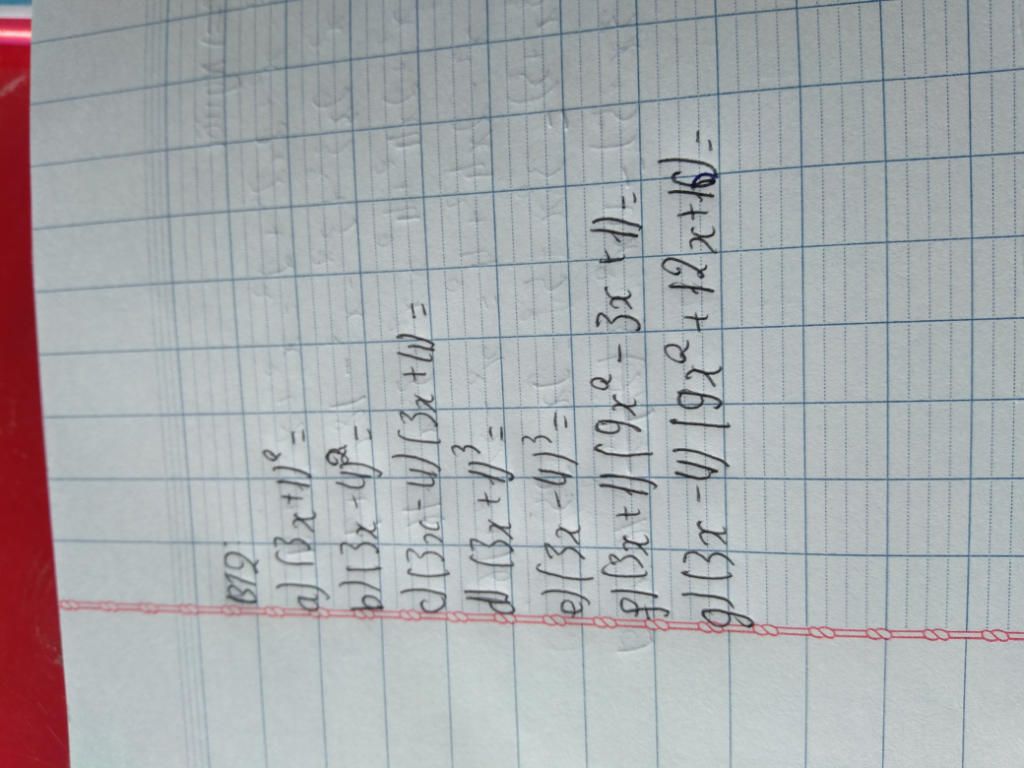 B12:
a) (3x+1)² =
b) (3x-4)² =
c) (3x-4)(3x+4) =
d) (3x+1)³ =
e) (3x-4)³ =
f) (3x+1)(9x²-3x+1) =
g) (3x-4)(9x²+12x+16) =